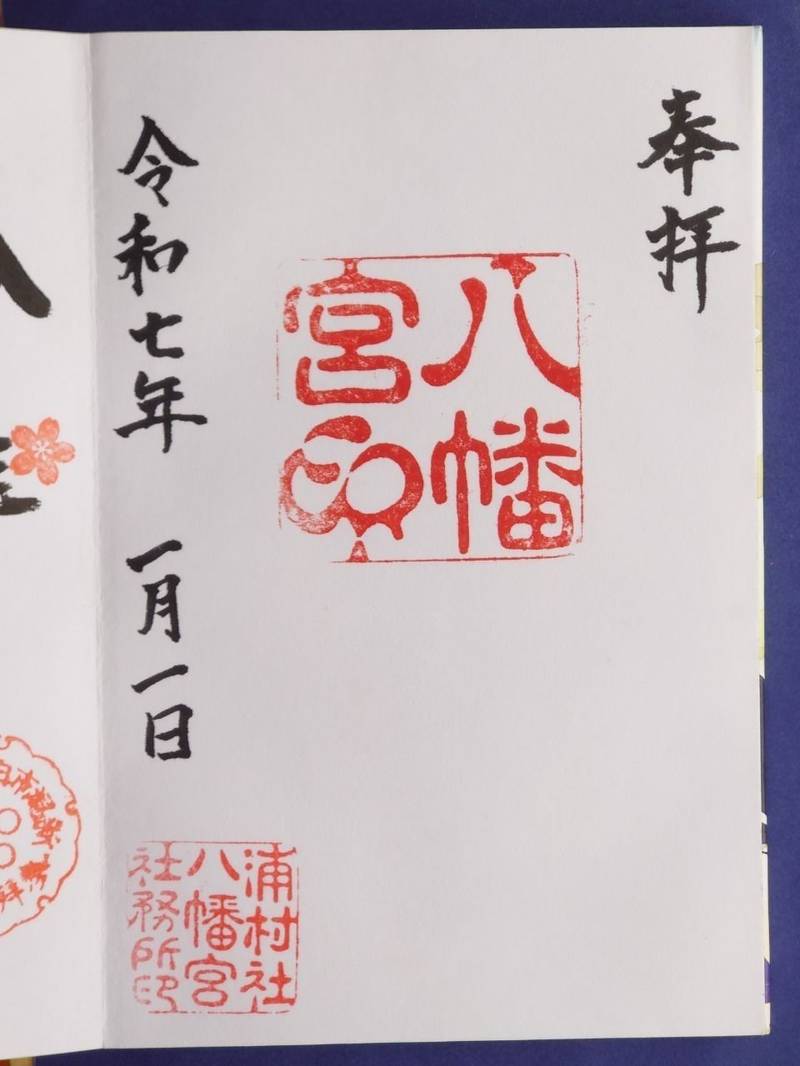 奉拝
八幡
宮印
令和七年 一月一日
浦村社
八幡宮
社務所印